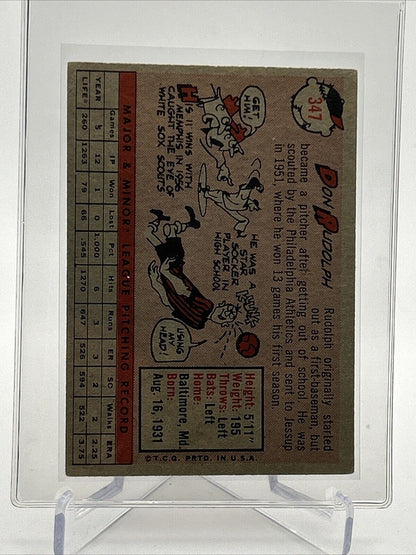 347
DON RUDOLPH
Rudolph originally started
out as a first-baseman, but
became a pitcher after getting out of school. He was
scouted by the Philadelphia Athletics and sent to Jessup
in 1951, where he won 13 games his first season.
GET HIM!
HIS 11 WINS WITH
MEMPHIS IN 1956
CAUGHT THE EYE OF
WHITE SOX SCOUTS
HE WAS A
STAR
SOCKER
PLAYER IN
HIGH SCHOOL
USING
MY
HEAD!
Height: 5'11"
Weight: 195
Throws: Left
Bats: Left
Home:
Baltimore, Md.
Born:
Aug. 16, 1931
© T.C.G. PRTD. IN U.S.A.
MAJOR & MINOR LEAGUE PITCHING RECORD
Games IP Won Lost Pct Hits Runs ER SO Walks ERA
YEAR 5 12 1 0 1.000 6 3 3 2 2 2.25
LIFE 260 1263 79 66 .545 1270 647 526 594 522 3.75